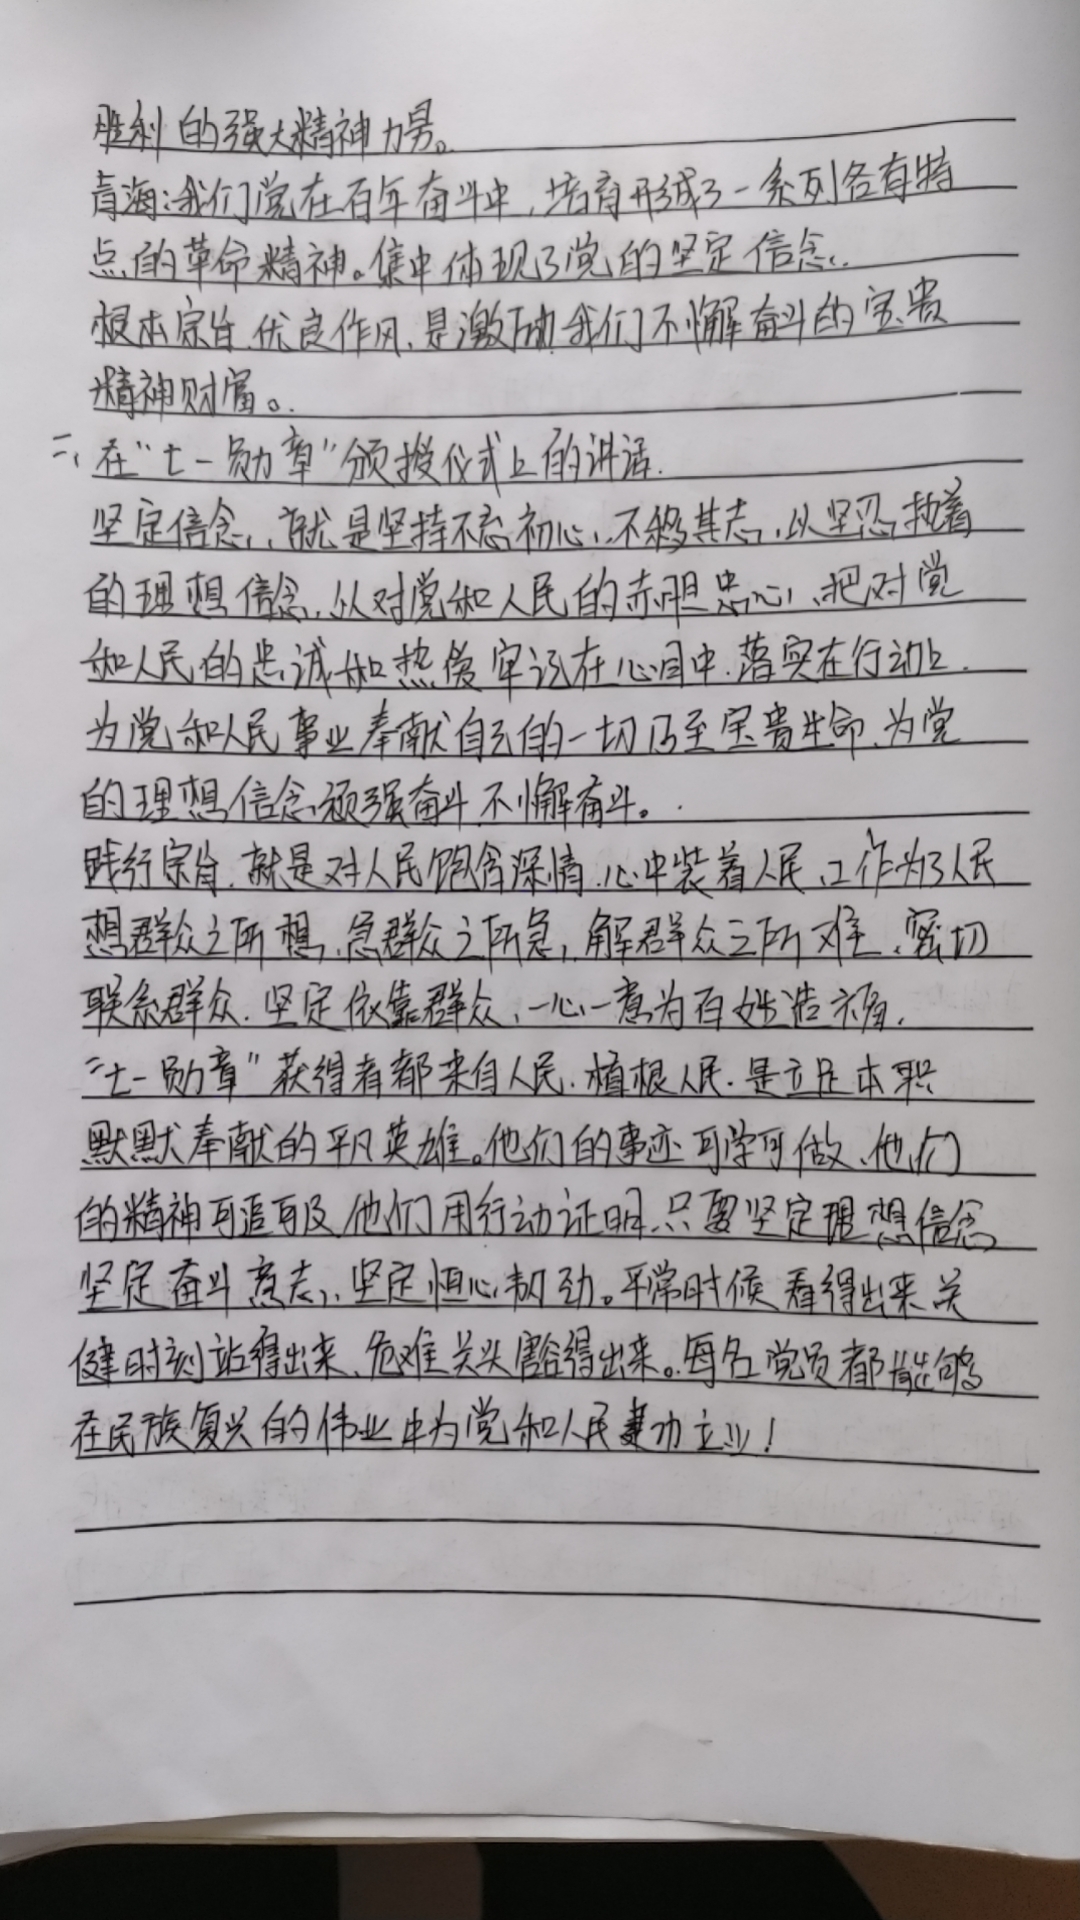 胜利的强大精神力量。
青海:我们党在百年奋斗中,培育形成了一系列各有特
点的革命精神。集中体现了党的坚定信念、
根本宗旨、优良作风,是激励我们不懈奋斗的宝贵
精神财富。
二、在“七一勋章”颁授仪式上的讲话.
坚定信念,就是坚持不忘初心、不移其志,以坚忍执着
的理想信念,以对党和人民的赤胆忠心,把对党
和人民的忠诚和热爱牢记在心目中.落实在行动上.
为党和人民事业奉献自己的一切乃至宝贵生命,为党
的理想信念顽强奋斗、不懈奋斗。
践行宗旨,就是对人民饱含深情,心中装着人民,工作为了人民
想群众之所想,急群众之所急,解群众之所难,密切
联系群众.坚定依靠群众,一心一意为百姓造福,
“七一勋章”获得者都来自人民.植根人民.是立足本职
默默奉献的平凡英雄。他们的事迹可学可做,他们
的精神可追可及,他们用行动证明,只要坚定理想信念
坚定奋斗意志,坚定恒心韧劲。平常时候看得出来关
键时刻站得出来、危难关头豁得出来。每名党员都能够
在民族复兴的伟业中为党和人民建功立业!